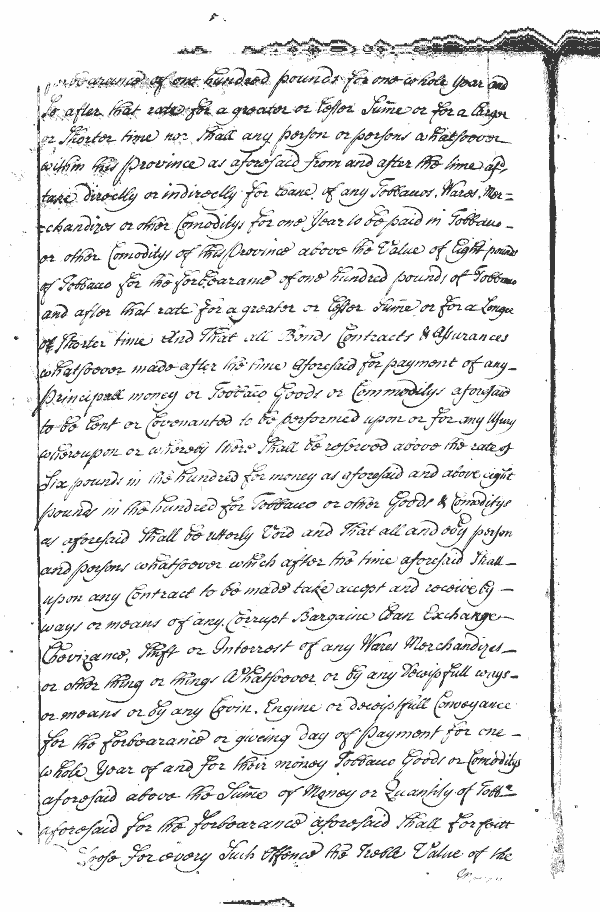 forbearance of one hundred pounds for one whole year and
so after that rate for a greater or lesser Sume or for a larger
or Shorter time nor Shall any person or persons whatsoever
within this Province as aforesaid from and after the time afsd
take directly or indirectly for Loane of any Tobbacos, Wares, Mer=
=chandizes or other Comoditys for one Year to be paid in Tobbaco
or other Comoditys of this Province above the Value of Eight pounds
of Tobbaco for the forbearance of one hundred pounds of Tobbaco
and after that rate for a greater or lesser Sume or for a Longer
or Shorter time And That all Bonds Contracts & Assurances
whatsoever made after the time aforesaid for payment of any
Principall money or Tobbaco Goods or Commoditys aforesaid
to be Lent or Covenanted to be performed upon or for any Usury
whereupon or whereby there Shall be reserved above the rate of
Six pounds in the hundred for money as aforesaid and above eight
pounds in the hundred for Tobbaco or other Goods & Comoditys
as aforesaid Shall be utterly Void and That all and evy person
and persons whatsoever which after the time aforesaid Shall
upon any Contract to be made take accept and receive by
ways or means of any Corrupt Bargaine Loan Exchange
Chevizance, Shift or Interrest of any Wares Merchandizes
or other thing or things Whatsoever or by any deceipfull ways
or means or by any Covin, Engine or deceiptfull Conveyance
for the forbearance or giveing day of Payment for one
whole Year of and for their money Tobbaco Goods or Comoditys
aforesaid above the Sume of Money or Quantity of Tobbo
aforesaid for the forbearance aforesaid Shall forfeit
&lose for every Such Offence the Treble Value of the